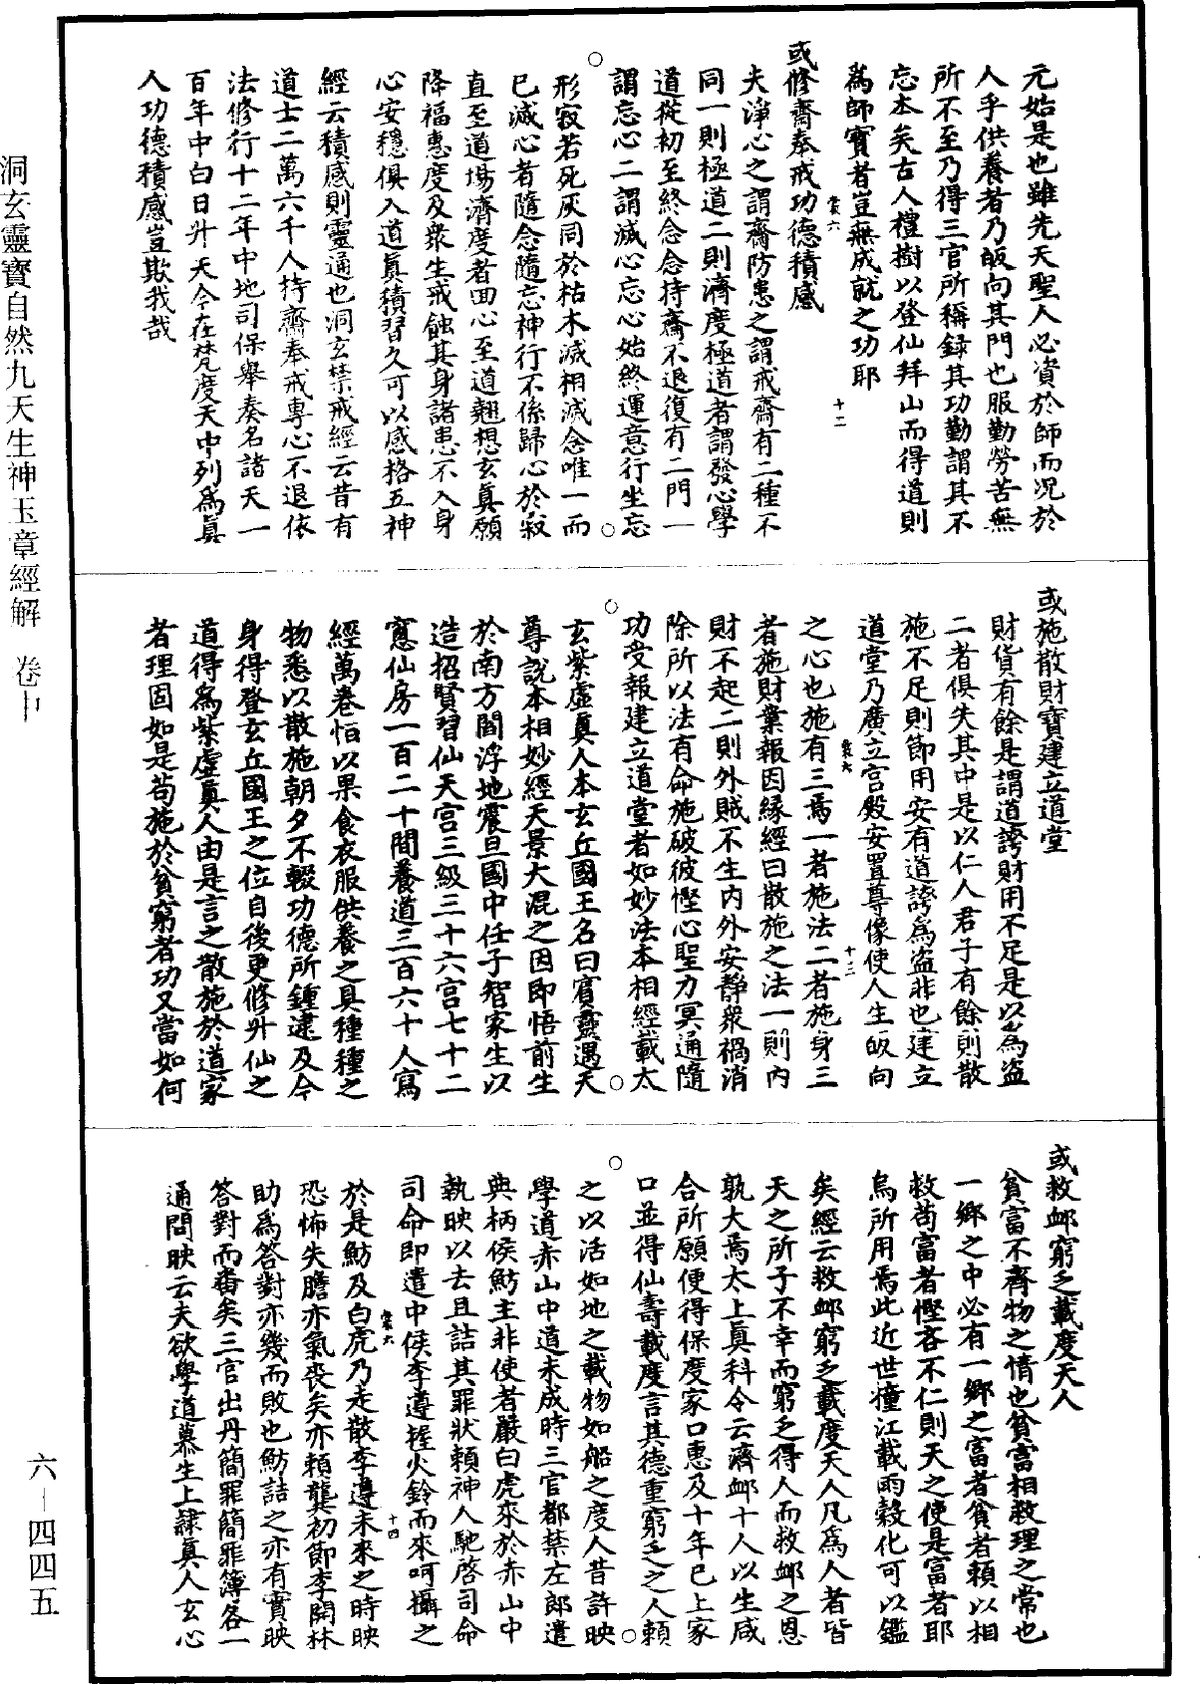 元始是也雖先天聖人必資於師而況於
人乎供養者乃皈向其門也服勤勞苦無
所不至乃得三官所稱録其功勤謂其不
忘本矣古人禮樹以登仙拜山而得道則
為師寶者豈無成就之功耶
十二
或修齋奉戒功德積感
夫淨心之謂齋防患之謂戒齋有二種不
同一則極道二則濟度極道者謂發心學
道從初至終念念持齋不退復有二門一
謂忘心二謂滅心忘心始終運意行坐忘
形寂若死灰同於枯木滅相滅念唯一而
已滅心者隨念隨忘神行不係歸心於寂
直至道場濟度者回心至道翹想玄真願
降福惠度及衆生戒蝕其身諸患不入身
心安穩俱入道真積習久可以感格五神
經云積感則靈通也洞玄禁戒經云昔有
道士二萬六千人持齋奉戒專心不退依
法修行十二年中地司保舉奏名諸天一
百年中白日升天今在梵度天中列為真
人功德積感豈欺我哉
或施散財寶建立道堂
財貨有餘是謂道誇財用不足是以為盜
二者俱失其中是以仁人君子有餘則散
施不足則節用安有道誇為盜非也建立
道堂乃廣立宮殿安置尊像使人生皈向
之心也施有三焉一者施法二者施身三
十三
者施財業報因緣經曰散施之法一則內
財不起二則外賊不生內外安靜衆禍消
除所以法有命施破彼慳心聖力冥通隨
功受報建立道堂者如妙法本相經載太
玄紫虛真人本玄丘國王名曰賓靈遇天
尊說本相妙經天景大混之因即悟前生
於南方閻浮地震旦國中任子智家生以
造招賢習仙天宮三級三十六宮七十二
窓仙房一百二十間養道三百六十人寫
經萬卷恒以果食衣服供養之具種種之
物悉以散施朝夕不輟功德所鍾逮及今
身得登玄丘國王之位自後更修升仙之
道得為紫虛真人由是言之散施於道家
者理固如是苟施於貧窮者功又當如何
或救卹窮乏載度天人
貧富不齊物之情也貧富相救理之常也
一鄉之中必有一鄉之富者貧者賴以相
救苟富者慳吝不仁則天之使是富者耶
烏所用焉此近世撞江載雨穀化可以鑑
矣經云救卹窮乏載度天人凡為人者皆
天之所子不幸而窮乏得人而救卹之恩
孰大焉太上真科令云濟卹十人以生咸
合所願便得保度家口惠及十年已上家
口並得仙壽載度言其德重窮乏之人賴
之以活如地之載物如船之度人昔許映
學道赤山中道未成時三官都禁左郎遣
典柄侯魴主非使者嚴白虎來於赤山中
執映以去且詰其罪狀賴神人馳啓司命
司命即遣中侯李遵握火鈴而來呵攝之
十四
於是魴及白虎乃走散李遵未來之時映
恐怖失膽亦氣喪矣亦賴龔初節李開林
助為答對亦幾而敗也魴詰之亦有實映
答對而番矣三官出丹簡罪簡罪簿各一
通問映云夫欲學道慕生上隷真人玄心
洞玄靈寶自然九天生神玉章經解　卷中
六—四四五